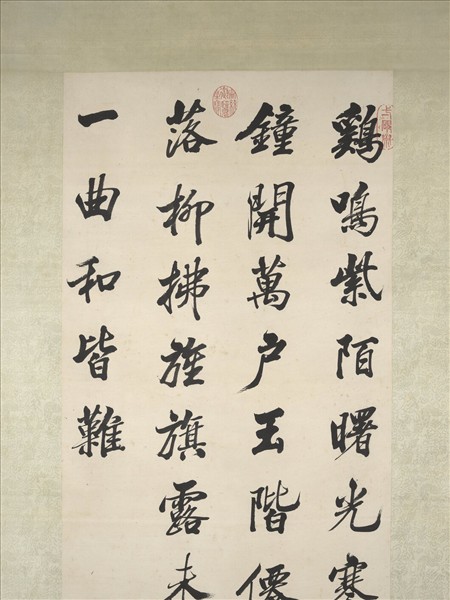 鷄鳴紫陌曙光寒
鐘開萬户玉階僊
落柳拂旌旗露未
一曲和皆難